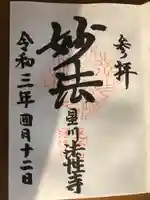 参拝
妙法
星川法性寺
令和三年酉月十二日